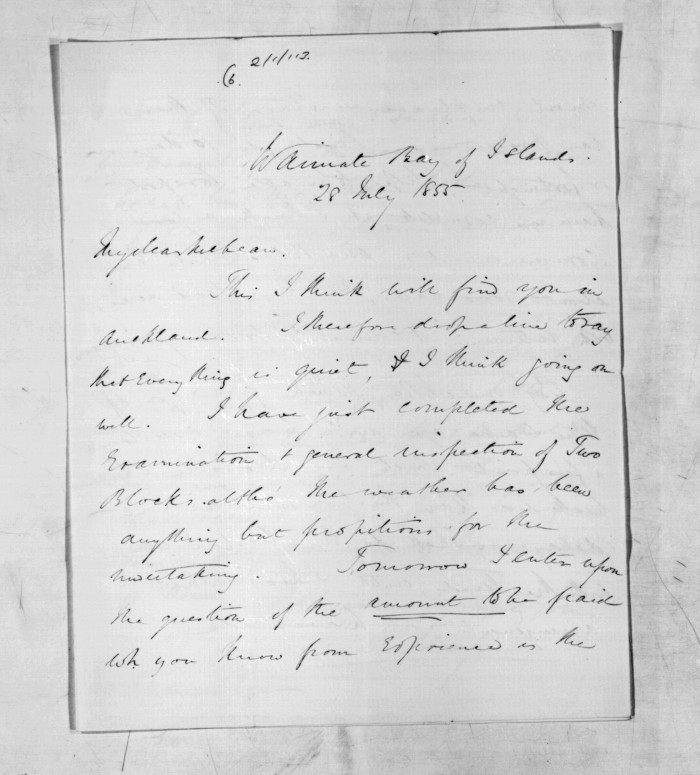 2/1/113.
6.
Waimate Bay of Islands.
28 July 1855.
My dear McLean.
This I think will find you in
Auckland. I therefore drop a line to say
that Everything is quiet, & I think going on
well. I have just completed the
Examination & general inspection of Two
Blocks altho' the weather has been
anything but propitious for the
undertaking. Tomorrow I enter upon
the question of the amount to be paid
wh. you know from Experience is the